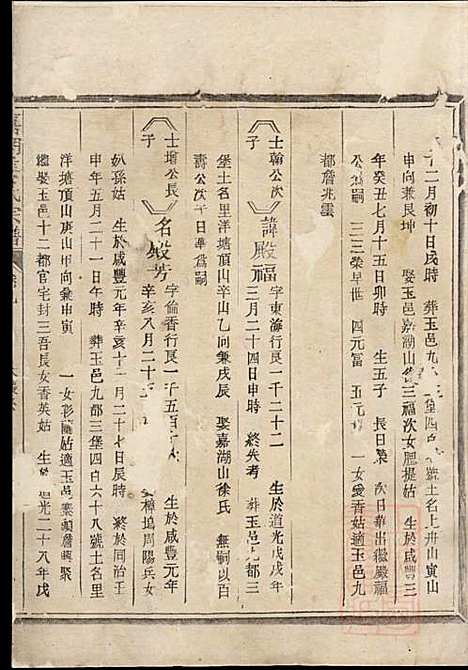 十二月初十日戌時 葬玉邑九 堡四 號土名上舟山寅山
申向兼艮坤 娶玉邑嘉湖山 三福次女肥提姑 生於咸豐三
年癸丑七月十五日卯時 生五子 長日榮 次日華出繼嚴福
公 嗣 三三榮早世 四元富 五元 一女愛香姑適玉邑九
都詹兆雲
士翰公次子
諱殿福
字東海行良一千二十二 生於道光戊戌年
三月二十四日申時 終失考 葬玉邑九都三
堡土名里洋塘頂山辛山乙向兼戌辰 娶嘉湖山徐氏 無嗣以百
壽公次子日華為嗣
士墖公長子
名殿芳
字倫香行良一千五百 生於咸豐元年
辛亥八月二十 樟塢周陽兵女
奀孫姑 生於咸豐元年辛亥十一月二十七日辰時 終於同治壬
申年五月二十 日午時 葬玉邑九都三堡四百六十八號土名里
洋塘頂山庚山甲向兼申寅 一女彩 姑適玉邑 嶺詹興聚
繼娶玉邑十二都官宅封三吾長女香英姑 生 光二十八年戊